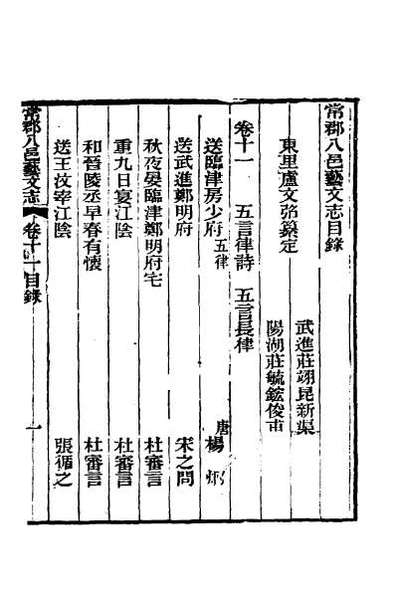 常郡八邑藝文志目錄
東里盧文弨纂定
武進莊翊昆新渠
陽湖莊毓鋐俊甫
卷十一 五言律詩 五言長律
送臨津房少府 五律 唐 楊炯
送武進鄭明府 宋之問
秋夜宴臨津鄭明府宅 杜審言
重九日宴江陰 杜審言
和晉陵丞早春有懷 杜審言
送王汶宰江陰 張循之
常郡八邑藝文志 卷十一目錄 一